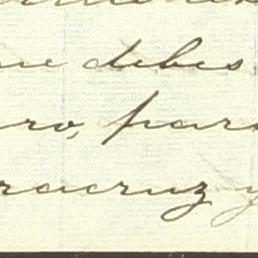 ue debes
ro, para
racruz y